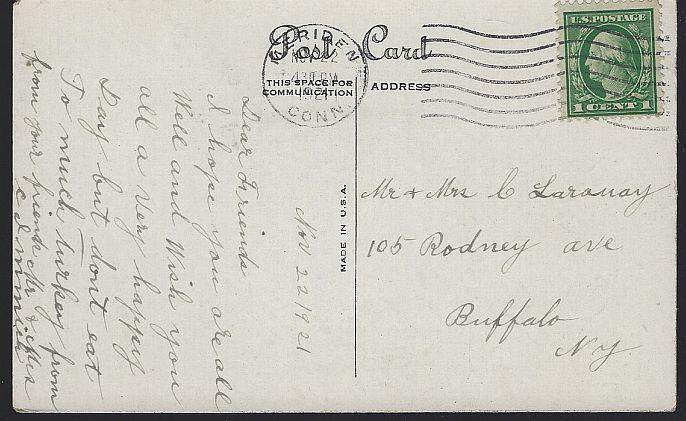 Post Card
THIS SPACE FOR
COMMUNICATION
ADDRESS
MERIDEN
NOV 22
1921
CONN.
U.S. POSTAGE
1 CENT 1
MADE IN U.S.A.
Nov 22 1921
Dear Friends
I hope you are all
Well and Wish you
all a very happy
Day but dont eat
To much turkey from
from your friends Mr & Mrs
Mr & Mrs C Laraway
105 Rodney ave
Buffalo
NY